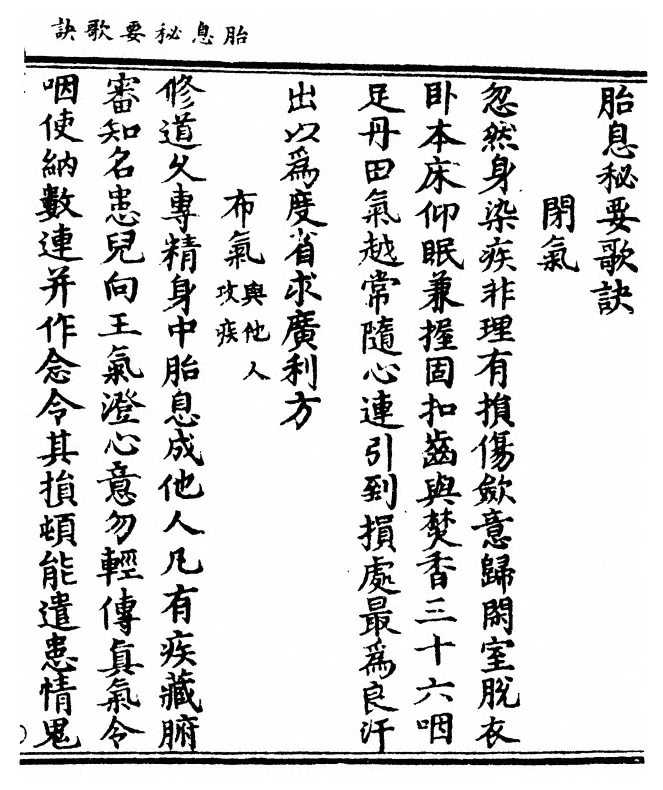 胎息秘要歌訣
胎息秘要歌訣
閉氣
忽然身染疾非理有損傷斂意歸閑室脫衣
卧本床仰眠兼握固扣齒與焚香三十六咽
足丹田氣越常隨心連引到損處最為良汗
出以爲度省求廣利方
布氣與他人攻疾
修道久專精身中胎息成他人凡有疾藏腑
審知名患兒向王氣澄心意勿輕傳真氣令
咽使納數連并作念令其損頓能遣患情鬼